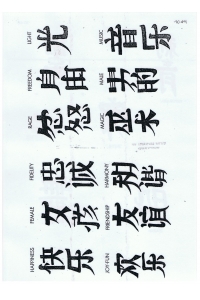 HAPPINESS FEMALE FIDELITY RAGE FREEDOM LIGHT
快乐 女孩 忠诚 忿怒 自由 光
JOY-FUN FRIENDSHIP HARMONY MAGIC MALE MUSIC
欢乐 友谊 和谐 巫术 男的 音乐